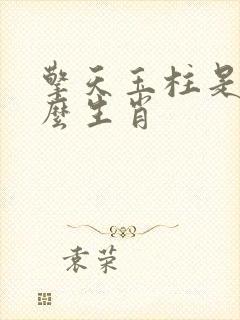 擎天玉柱是
麼生肖
袁荣